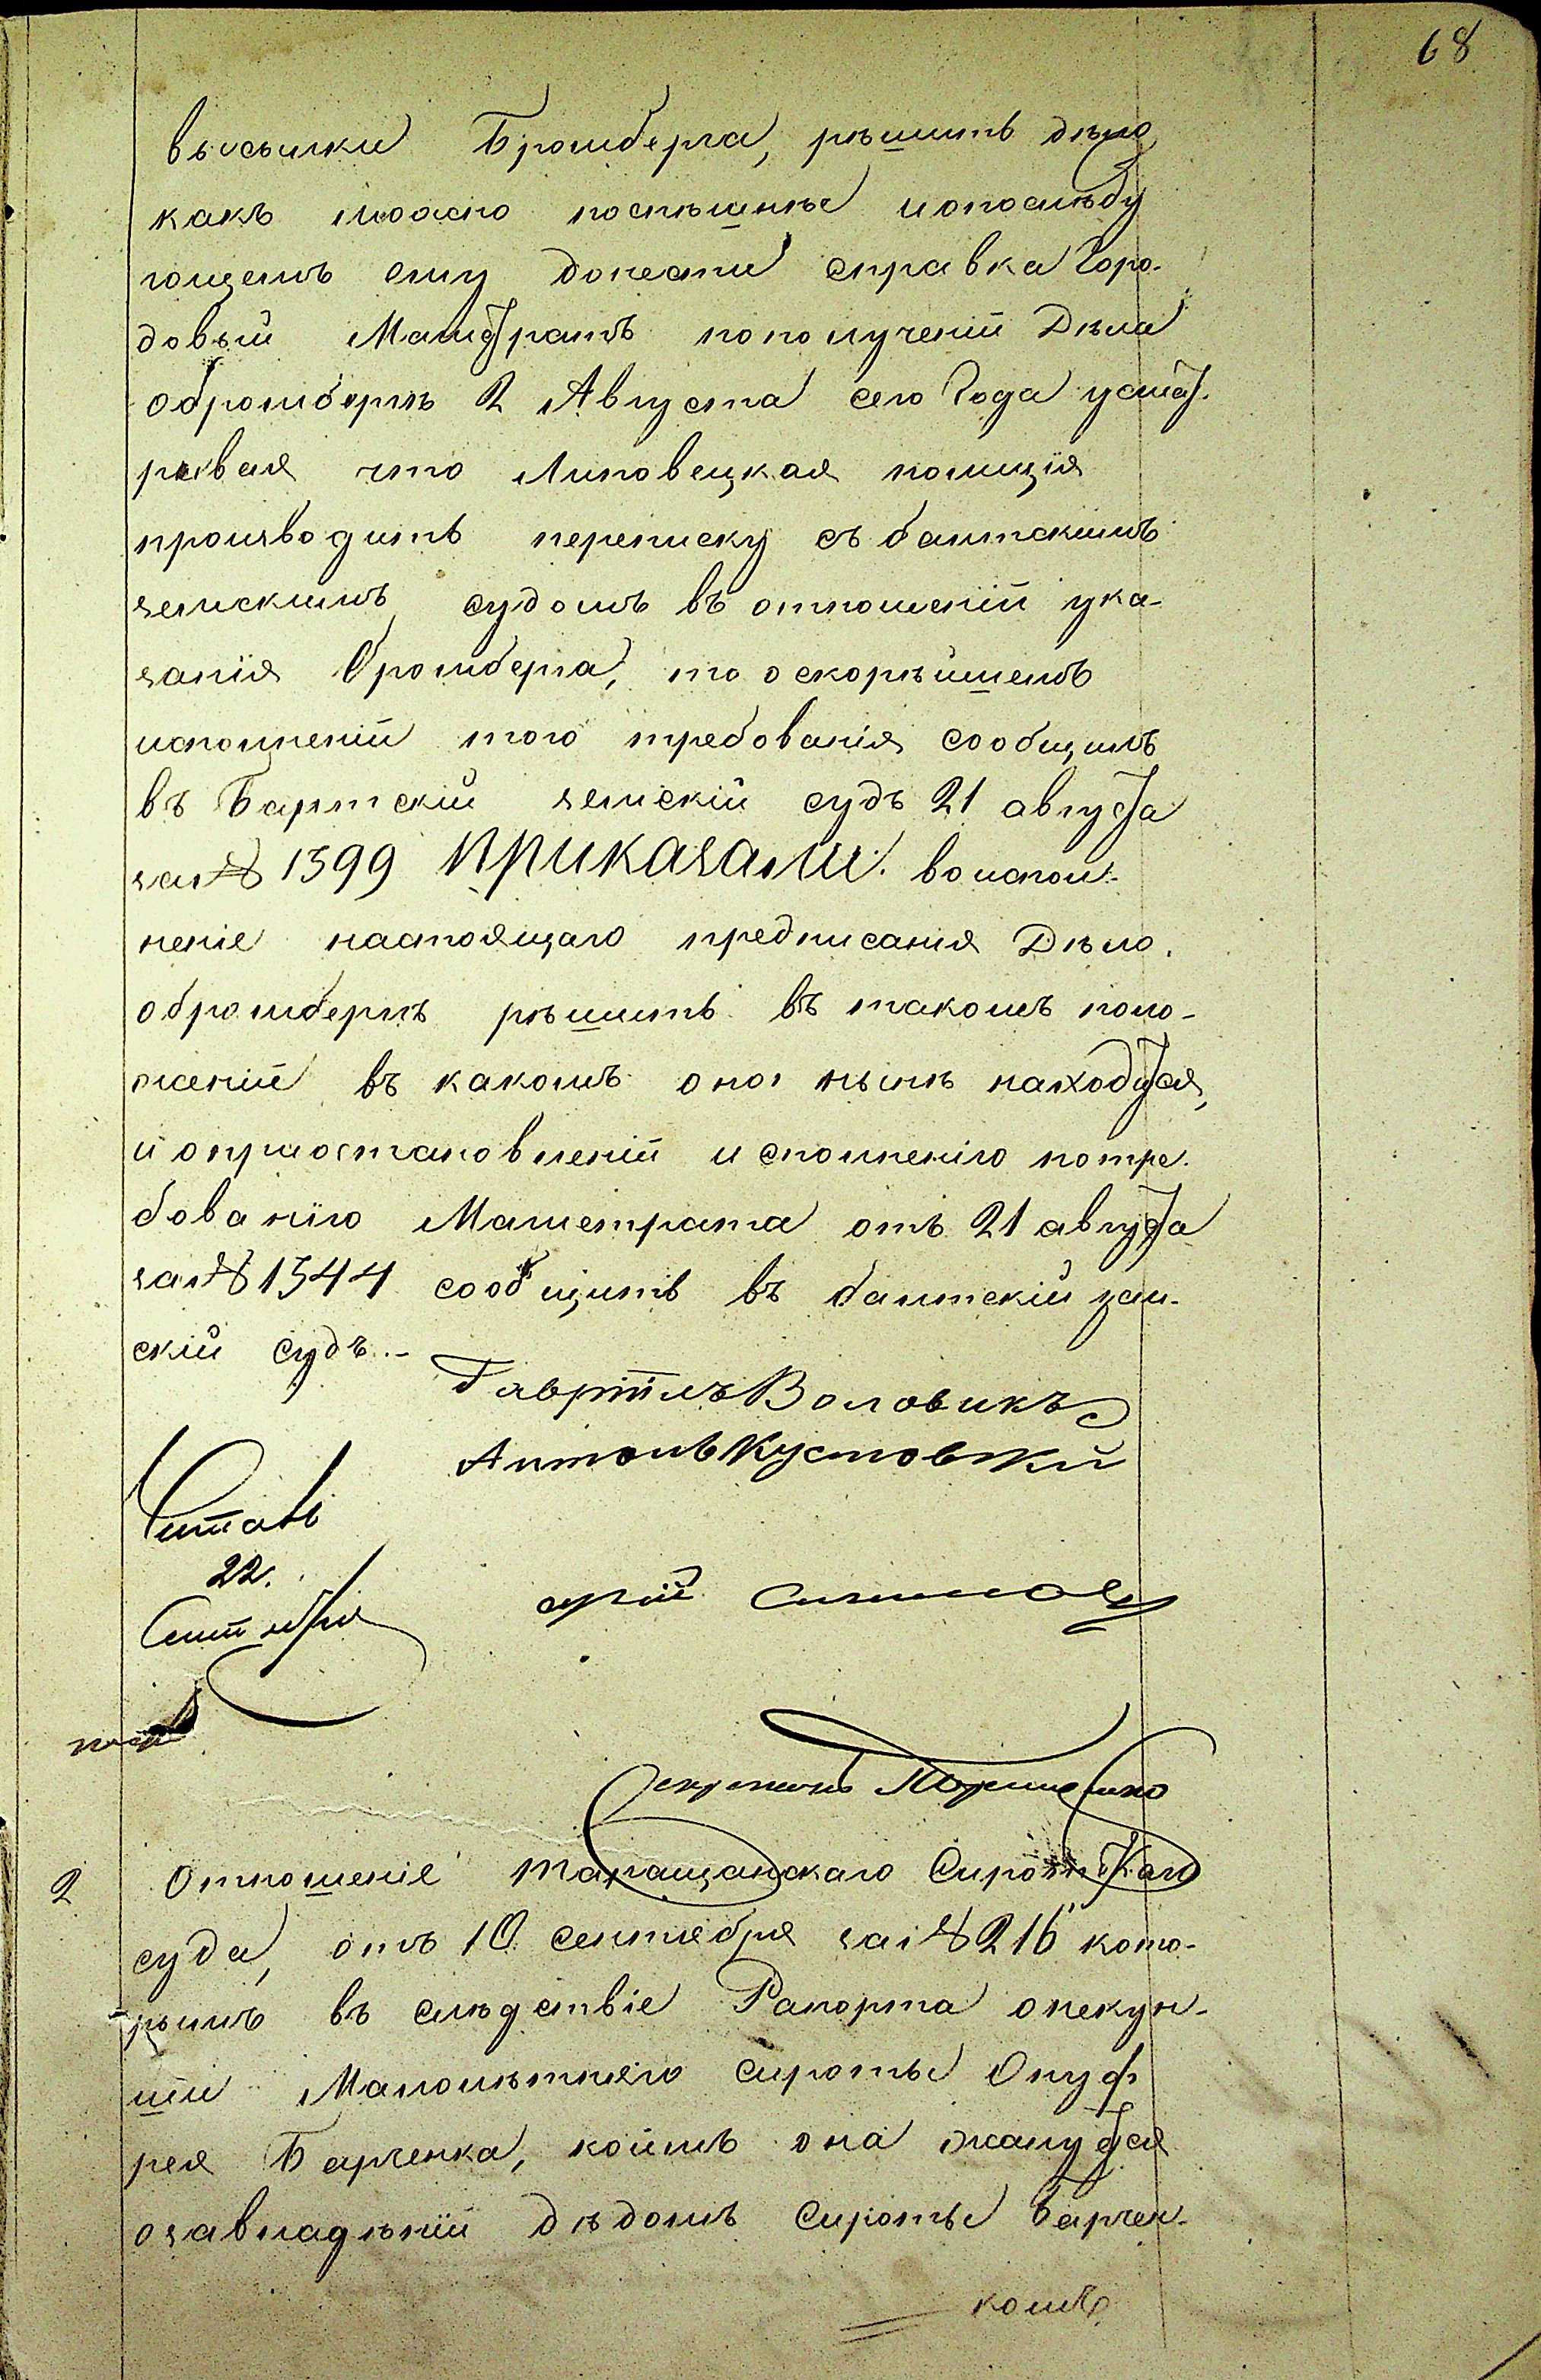 68
высылки Бромберга, рѣшить дѣло,
какъ можно поспѣшнѣе ипослѣду
ющемъ ему донести справка Горо-
довый Магистратъ пополученіи Дѣла
обромбергѣ 2 Августа сего Года усмат.
ривая что Липовецкая полиція
производитъ переписку съ балтскимъ
земскимъ судомъ въ отношеніи ука-
занія бромберга, то оскорѣйшемъ
исполненіи того требованія сообщилъ
въ Балтскій земскій судъ 21 августа
за № 1399 Приказали. воиспол-
неніе настоящаго предписанія Дѣло.
обромбергѣ рѣшить въ такомъ поло-
женіи въ какомъ оно нынѣ находится,
и опріостановленіи исполненію потре.
бованію Магистрата отъ 21 августа
за № 1344 сообщить въ балтскій зем-
скій судъ.-
Гавріилъ Воловикъ
Антонъ Кустовскій
Читалъ
22.
Сентября
Секретарь
2 Отношеніе Таращанскаго Сиротскаго
суда, отъ 10 сентября за № 216 кото-
рымъ въ слѣдствіе Рапорта опекун-
ши Малолѣтняго сироты Онуф
рея Барченка, коимъ она жалуется
озавладѣніи дѣдомъ Сироты Барчен-
комъ